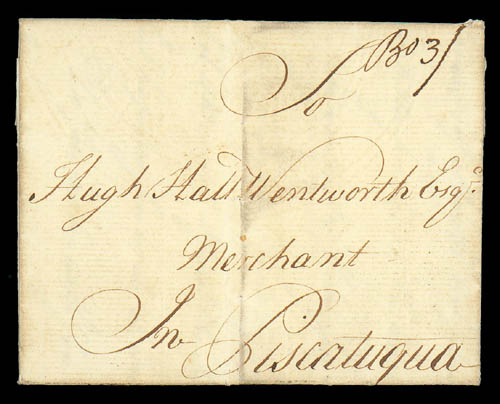 Bo 3/
To
Hugh Hall Wentworth Esqr.
Merchant
In Piscatuqua